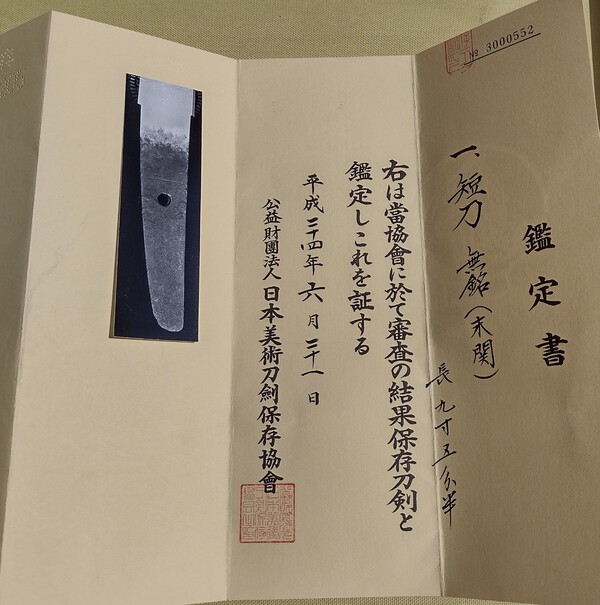 № 3000552
鑑定書
一、短刀 無銘(末関)
長 九寸五分半
右は當協會に於て審査の結果保存刀剣と
鑑定しこれを証する
平成二十四年六月二十一日
公益財團法人 日本美術刀劍保存協會